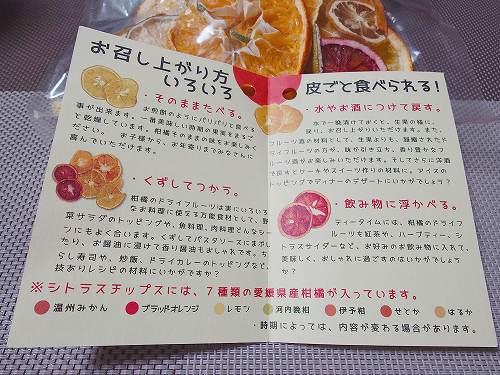 お召し上がり方
いろいろ
・そのままたべる。
お煎餅のようにパリパリと食べる
事が出来ます。一番美味しい時期の果実をまるご
と乾燥しています。柑橘そのままの味をお楽しみく
ださい。 お子様から、お年寄りまでみなさんに
喜んでいただけます。
・くずしてつかう。
柑橘のドライフルーツは実にいろいろ
なお料理に使える万能食材として、野
菜サラダのトッピングや、魚料理、肉料理どんなシー
ンにもよく合います。くずしてパスタソースにまぶし
たり、お醤油に浸けて香り醤油もおしゃれです。ち
らし寿司や、炒飯、ドライカレーのトッピングなど、
技ありレシピの材料にいかがですか？
皮ごと食べられる！
・水やお酒につけて戻す。
水で一晩漬けておくと、生果の様に、
戻り、お召し上がりいただけます。また、
フルーツ酒の材料として、生果よりも、凝縮されたド
ライフルーツの方が、味が引き立ち、香り豊かなフ
ルーツ酒がお楽しみいただけます。そしてさらに洋酒
で戻すとケーキやスイーツ作りの材料に。アイスの
トッピングでディナーのデザートにいかがでしょう？
・飲み物に浮かべる。
ティータイムには、柑橘のドライフ
ルーツを紅茶や、ハーブティー、シ
トラスサイダーなど、お好みのお飲み物に入れて、
美味しく、おしゃれに過ごすのはいかがでしょう
か？
※シトラスチップスには、7種類の愛媛県産柑橘が入っています。
温州みかん ブラッドオレンジ レモン 河内晩柑 伊予柑 せとか はるか
・時期によっては、内容が変わる場合があります。